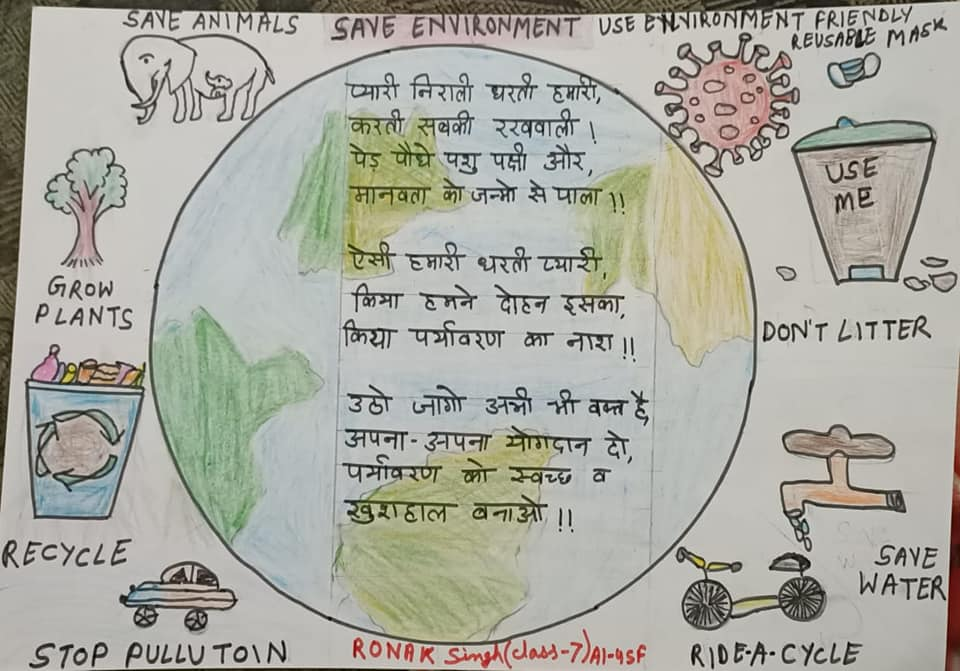 SAVE ANIMALS
SAVE ENVIRONMENT
USE ENVIRONMENT FRIENDLY
REUSABLE MASK
प्यारी निराली धरती हमारी,
करती सबकी रखवाली !
पेड़ पौधे पशु पक्षी और,
मानवता को जन्मो से पाला !!
ऐसी हमारी धरती प्यारी,
किया हमने दोहन इसका,
किया पर्यावरण का नाश !!
उठो जागो अभी भी वक्त है,
अपना-अपना योगदान दो,
पर्यावरण को स्वच्छ व
खुशहाल बनाओ !!
USE
ME
GROW
PLANTS
DON'T LITTER
RECYCLE
SAVE
WATER
STOP PULLUTOIN
RONAK Singh(class-7)A1-45F
RIDE-A-CYCLE